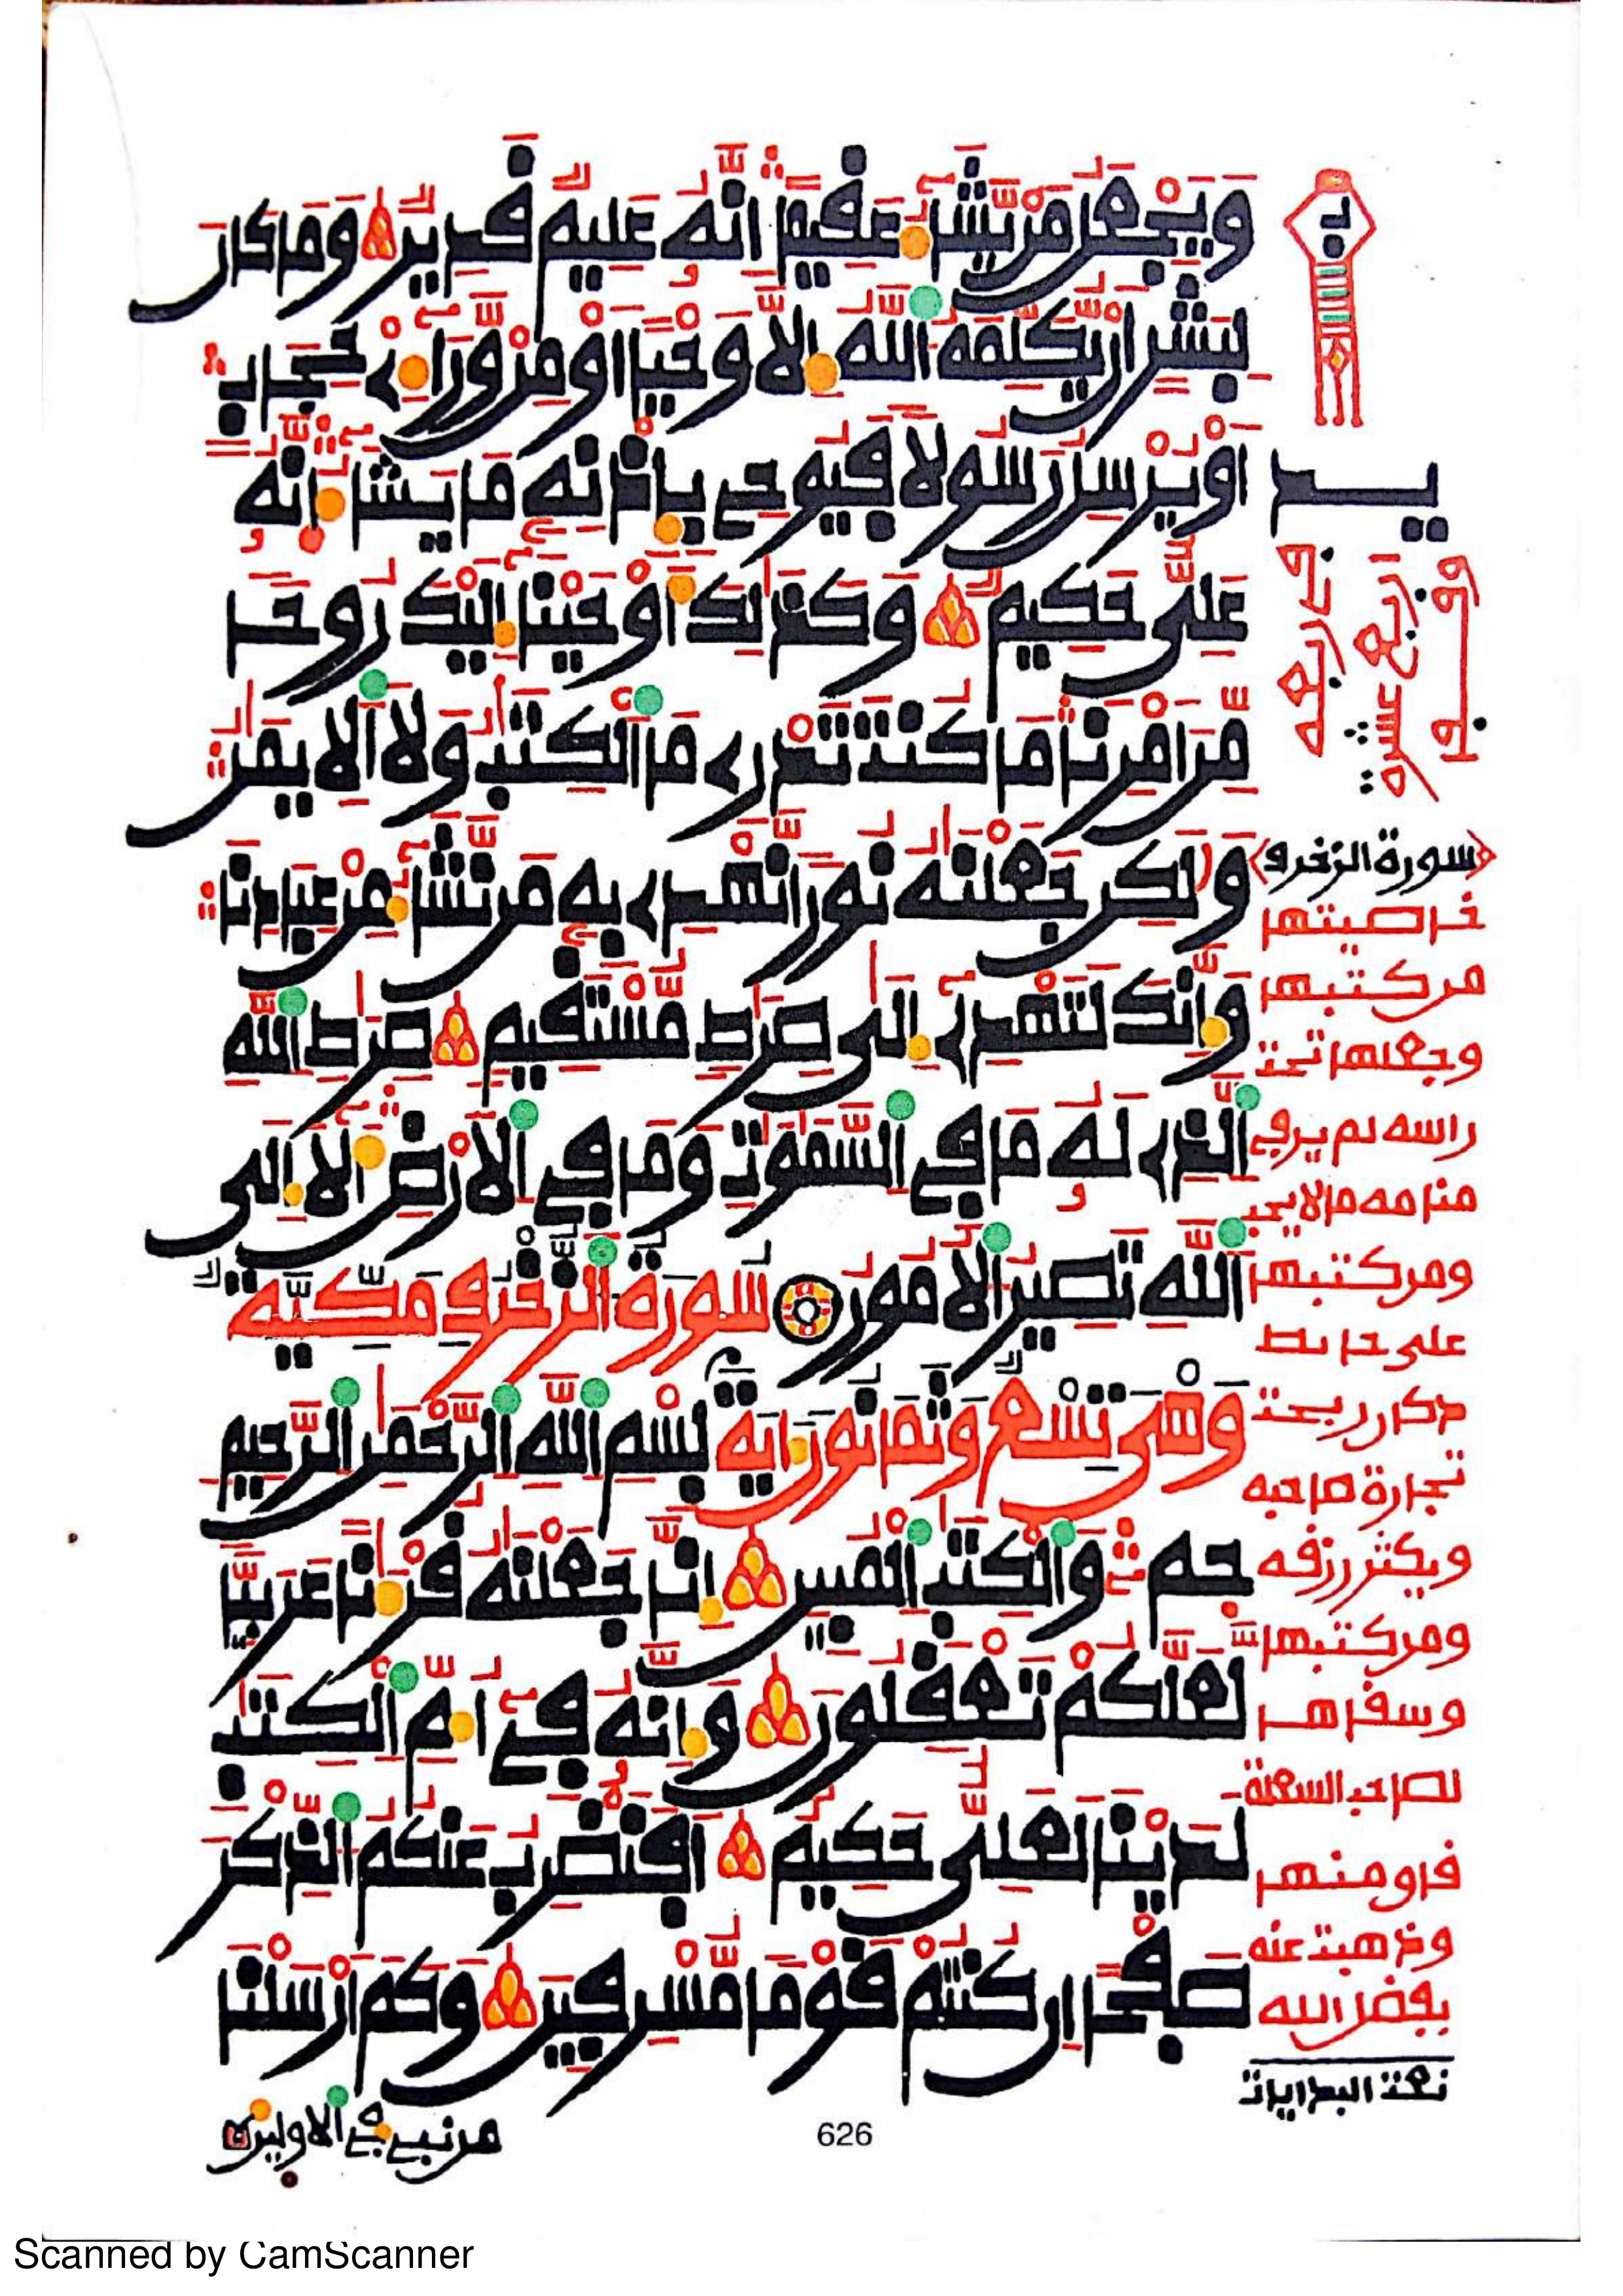 وَيَجْعَلُ مَنْ يَّشَآءُ عَقِيمًا اِنَّهُۥ عَلِيمٌ قَدِيرٌ وَمَا كَانَ
لِبَشَرٍ اَنْ يُّكَلِّمَهُ اُ۬للَّهُ إِلَّا وَحْيًا اَوْ مِنْ وَّرَآءِےْ حِجَابٍ
اَوْ يُرْسِلُ رَسُولًا فَيُوحِے بِإِذْنِهِۦ مَا يَشَآءُ اِنَّهُۥ
عَلِيٌّ حَكِيمٌ وَكَذَٰلِكَ أَوْحَيْنَآ إِلَيْكَ رُوحًا
مِّنَ اَمْرِنَا مَا كُنتَ تَدْرِے مَا اَ۬لْكِتَٰبُ وَلَا اَ۬لِايمَٰنُ
وَلَٰكِن جَعَلْنَٰهُ نُورًا نَّهْدِے بِهِۦ مَن نَّشَآءُ مِنْ عِبَادِنَا
وَإِنَّكَ لَتَهْدِےٓ إِلَىٰ صِرَٰطٍ مُّسْتَقِيمٍ صِرَٰطِ اِ۬للَّهِ
اِ۬لذِے لَهُۥ مَا فِے اِ۬لسَّمَٰوَٰتِ وَمَا فِے اِ۬لَارْضِ أَلَآ إِلَى
اَ۬للَّهِ تَصِيرُ اُ۬لُامُورُ سُورَةُ اُ۬لزُّخْرُفِ مَكِّيَّةٌ
وَهْىَ تِسْعٌ وَثَمَانُونَ ءَايَةً بِسْمِ اِ۬للَّهِ اِ۬لرَّحْمَٰنِ اِ۬لرَّحِيمِ
حمٓ وَالْكِتَٰبِ اِ۬لْمُبِينِ إِنَّا جَعَلْنَٰهُ قُرْءَٰنًا عَرَبِيًّا
لَّعَلَّكُمْ تَعْقِلُونَ وَإِنَّهُۥ فِےٓ أُمِّ اِ۬لْكِتَٰبِ
لَدَيْنَا لَعَلِيٌّ حَكِيمٌ اَفَنَضْرِبُ عَنكُمُ اُ۬لذِّكْرَ
صَفْحًا اِن كُنتُمْ قَوْمًا مُّسْرِفِينَ وَكَمَ اَرْسَلْنَا
من نبيء في الاولين
يد
وفور
اربع عشرة
في اربعه
سورة الزخرف
خاصيتها
من كتبها
وجعلها تحت
راسه لم ير في
منامه ما لا يحب
ومن كتبها
على حايط
دكان ربحت
تجارة صاحبه
ويكثر رزقه
ومن كتبها
وسقاها
لصاحب السعلة
منها
وذهبت عنه
بفضل الله
نعت البدايات
626
Scanned by CamScanner